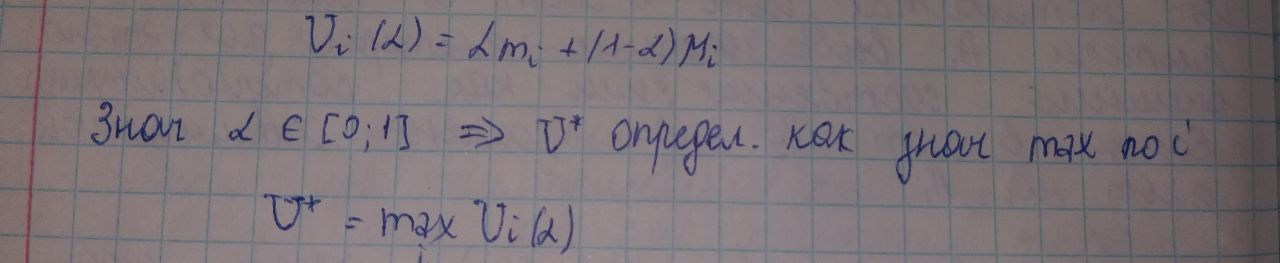 U_i(α) = αm_i + (1-α)M_i
Знач α ∈ [0;1] ⇒ U* определ. как знач max по i
U* = max U_i(α)
i